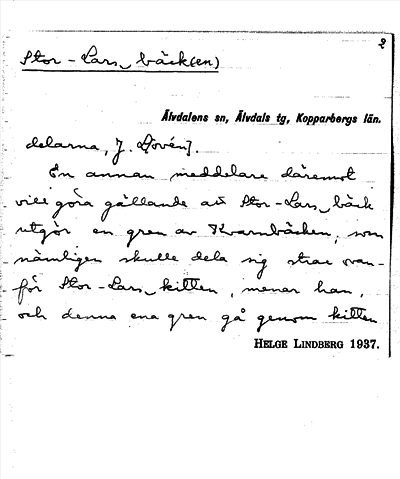 2
Stor-Lars bäck(en)
Älvdalens sn, Älvdals tg, Kopparbergs län.
delarna, J. Djovén].
En annan meddelare däremot
vill göra gällande att Stor-Lars bäck
utgör en gren av Kvarnbäcken, som
nämligen skulle dela sig strax ovan-
för Stor-Lars kitten, menar han,
och denna ena gren gå genom kitten
HELGE LINDBERG 1937.